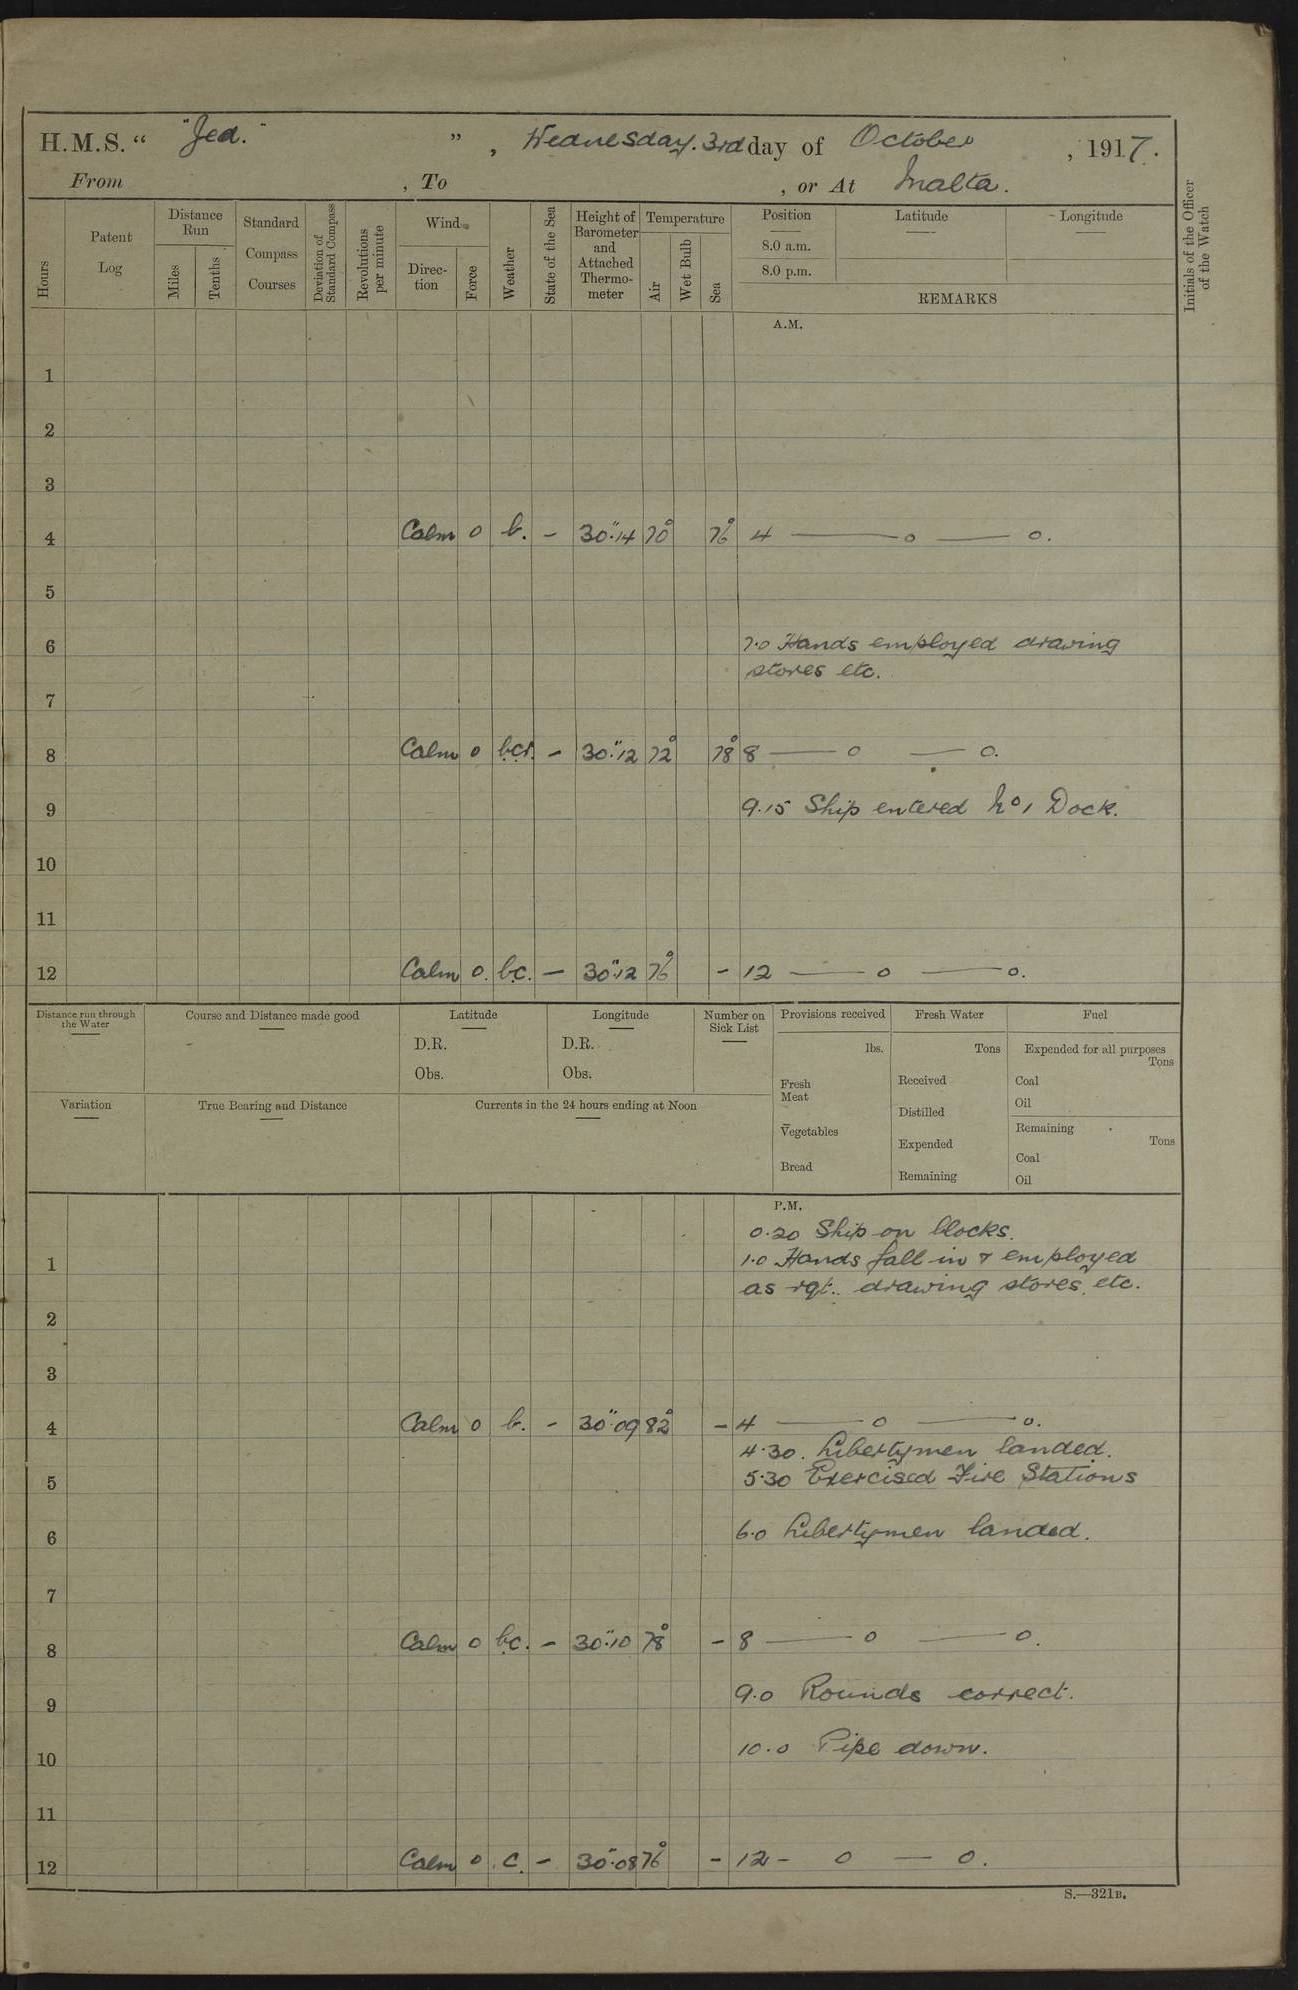 H.M.S. “ "Jed." ” , Wednesday. 3rd day of October , 1917.
From , To , or At Malta.
Hours
Patent Log
Distance Run
Miles
Tenths
Standard Compass Courses
Deviation of Standard Compass
Revolutions per minute
Wind
Direction
Force
Weather
State of the Sea
Height of Barometer and Attached Thermometer
Temperature
Air
Wet Bulb
Sea
Position
8.0 a.m.
8.0 p.m.
Latitude
Longitude
REMARKS
Initials of the Officer of the Watch
A.M.
1
2
3
4 Calm 0 b. – 30".14 70° 76° 4 —— 0 —— 0.
5
6 7.0 Hands employed drawing
stores etc.
7
8 Calm 0 – 30".12 72° 78° 8 —— 0 —— 0.
9 9.15 Ship entered No 1 Dock.
10
11
12 Calm 0. bc. – 30".12 76° – 12 —— 0 —— 0.
Distance run through the Water
Course and Distance made good
Latitude
D.R.
Obs.
Longitude
D.R.
Obs.
Number on Sick List
Provisions received
lbs.
Fresh Meat
Vegetables
Bread
Fresh Water
Tons
Received
Distilled
Expended
Remaining
Fuel
Expended for all purposes
Tons
Coal
Oil
Remaining
Tons
Coal
Oil
Variation
True Bearing and Distance
Currents in the 24 hours ending at Noon
P.M.
0.20 Ship on blocks.
1 1.0 Hands fall in & employed
as rqt. drawing stores, etc.
2
3
4 Calm 0 b. – 30".09 82° – 4 —— 0 —— 0.
4.30. Libertymen landed.
5 5.30 Exercised Fire Stations
6 6.0 Libertymen landed.
7
8 Calm 0 bc. – 30".10 78° – 8 —— 0 —— 0.
9 9.0 Rounds correct.
10 10.0 Pipe down.
11
12 Calm 0 c. – 30".08 76° – 12 – 0 — 0.
S.—321B.